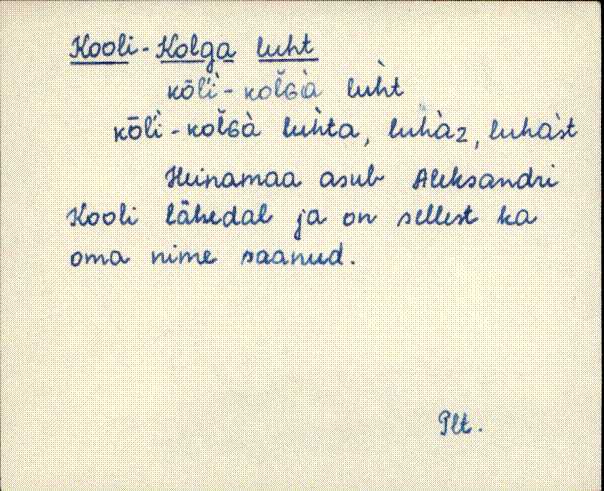 Kooli-Kolga luht
kōl̀i-kol̆ɢà luh̀t
kōl̀i-kol̆ɢà luh̀ta, luhàz, luhàst
Heinamaa asub Aleksandri
Kooli lähedal ja on sellest ka
oma nime saanud.
Plt.